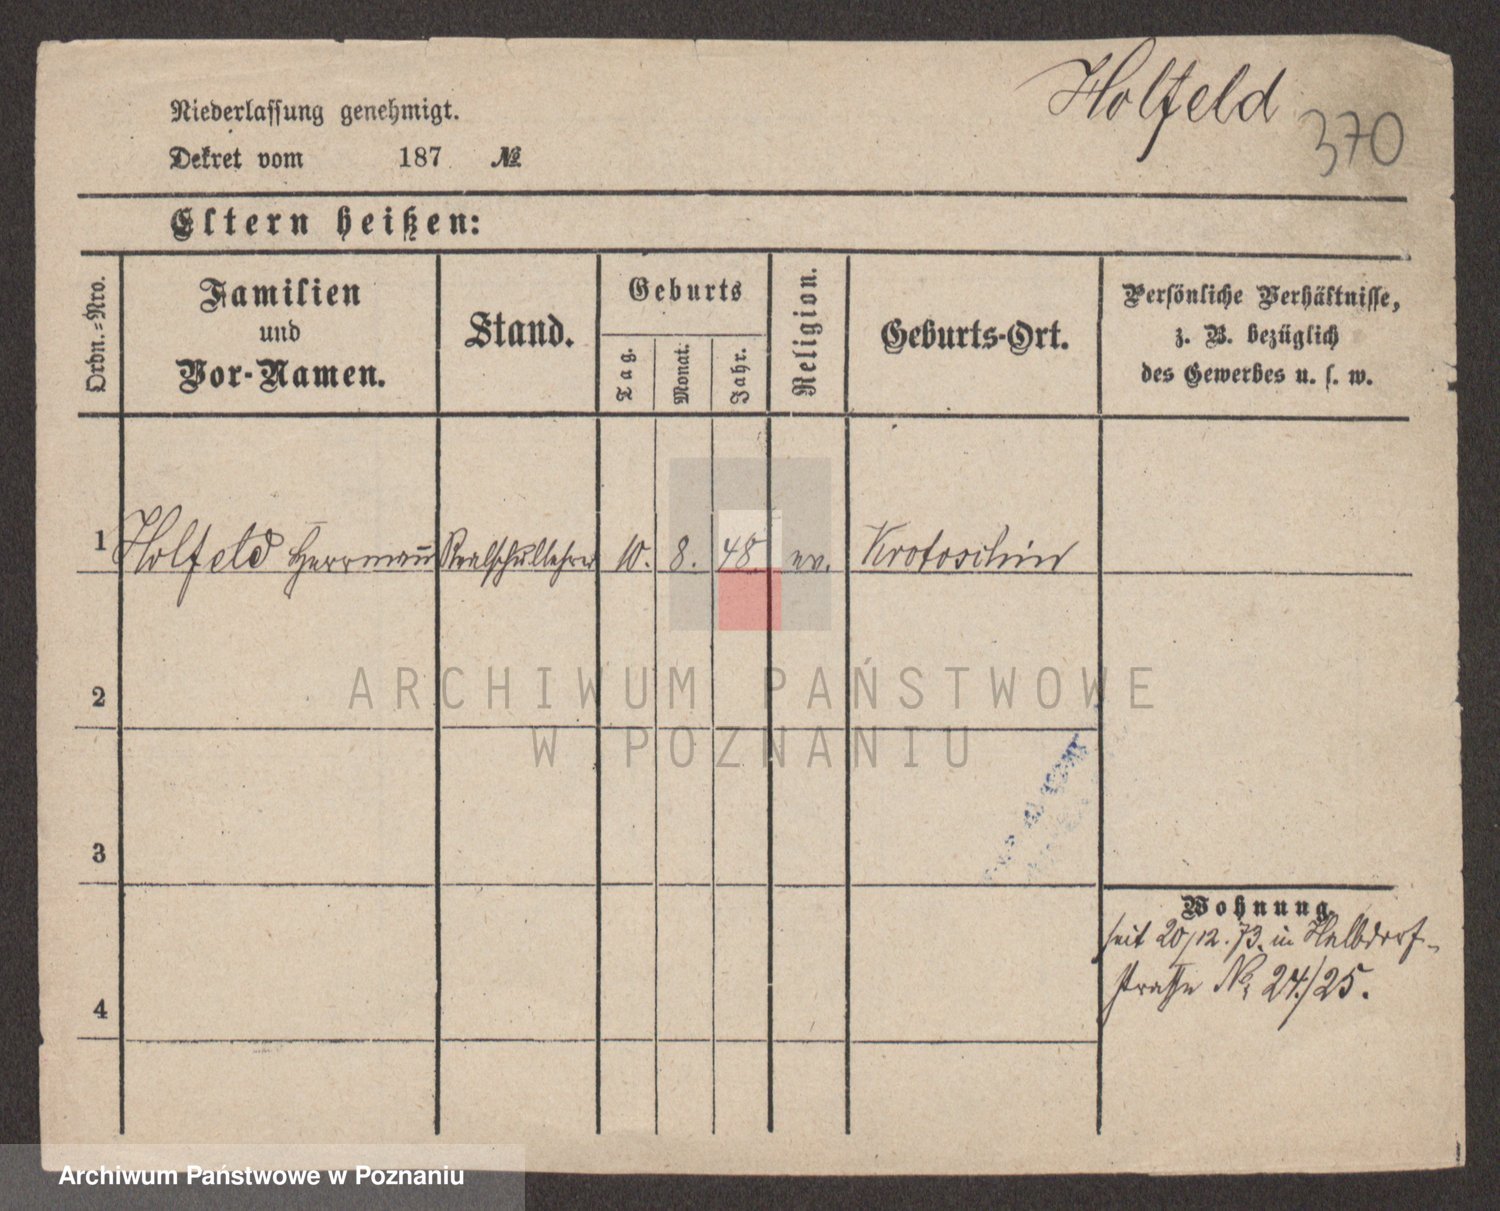 Holfeld
370
Niederlassung genehmigt.
Dekret vom 187 №
Eltern heißen:
Ordn.=Nro.
Familien
und
Vor-Namen.
Stand.
Geburts
Tag.
Monat.
Jahr.
Religion.
Geburts-Ort.
Persönliche Verhältnisse,
z. B. bezüglich
des Gewerbes u. s. w.
1 Holfeld Herrmañ Realschullehrer 10. 8. 48. ev. Krotoschin
2
3
4
Wohnung.
seit 20/12. 73. in Halbdorf-
straße No 24./25.
ARCHIWUM PAŃSTWOWE
W POZNANIU
Archiwum Państwowe w Poznaniu